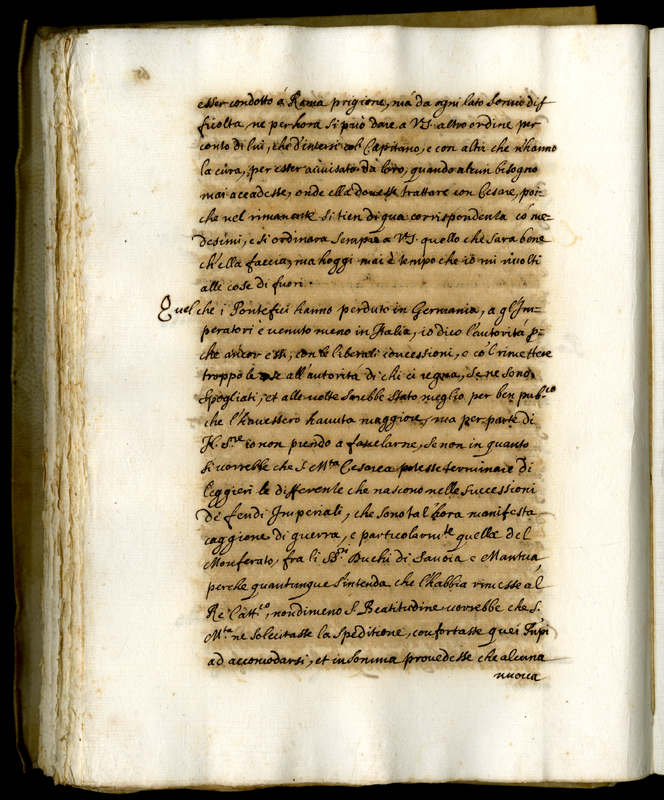 esser condotto á Roma prigione, má da ogni lato sono dif
ficoltà, ne per hora si può dare a V.S. altro ordine per
conto di lui, che d'intersi col Capitano, e con altri che n'hanno
la cura, per esser avvisato da loro, quando alcun bisogno
mai accadesse, onde ella dovesse trattare con Cesare, poi-
che nel rimanente si tien di qua corrispondenza có me-
desimi, e si ordinara sempre a V.S. quello che sara bene
ch'ella faccia, ma hoggi mai è tempo che io mi rivolti
alle cose di fuori.
Quel che i Pontefici hanno perduto in Germania, a gl'Im-
peratori è venuto meno in Italia, io dico l'autorità p-
che ancor essi, con le liberali concessioni, e có l rimettere
troppo le cose all'autorità di chi ci regna, se ne sono
spogliati, et alle volte sarebbe stato meglio per ben pub.co
che l'havessero havuta maggiore, ma per parte di
N. S.re io non prendo a favelarne, se non in quanto
si vorrebbe che S. M.tà Cesarea potesse terminare di
leggieri le differenze che nascono nelle successioni
de feudi Imperiali, che sono tal'hora manifesta
caggione di guerra, e particolarm.te quella del
Monferato, fra li SS.ri Duchi di Savoia e Mantua,
perche quantunque s'intenda che l'habbia rimesse al
Rè Catt.co, nondimeno S. Beatitudine vorrebbe che S.
M.tà ne solecitasse la speditione, confortasse quei Pnpi
ad accomodarsi, et in somma provedesse che alcuna
nuova